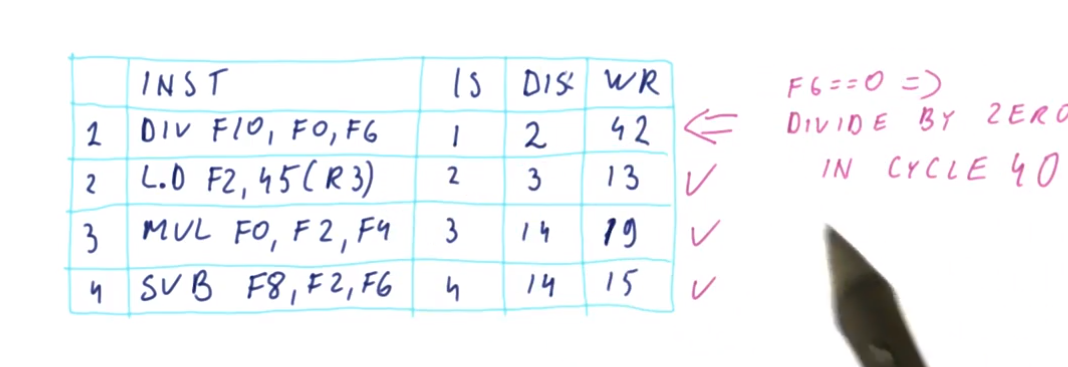 INST IS DIS WR
1 DIV F10, F0, F6 1 2 42
2 L.D F2, 45(R3) 2 3 13
3 MUL F0, F2, F4 3 14 19
4 SUB F8, F2, F6 4 14 15
F6==0 =>
DIVIDE BY ZERO
IN CYCLE 40